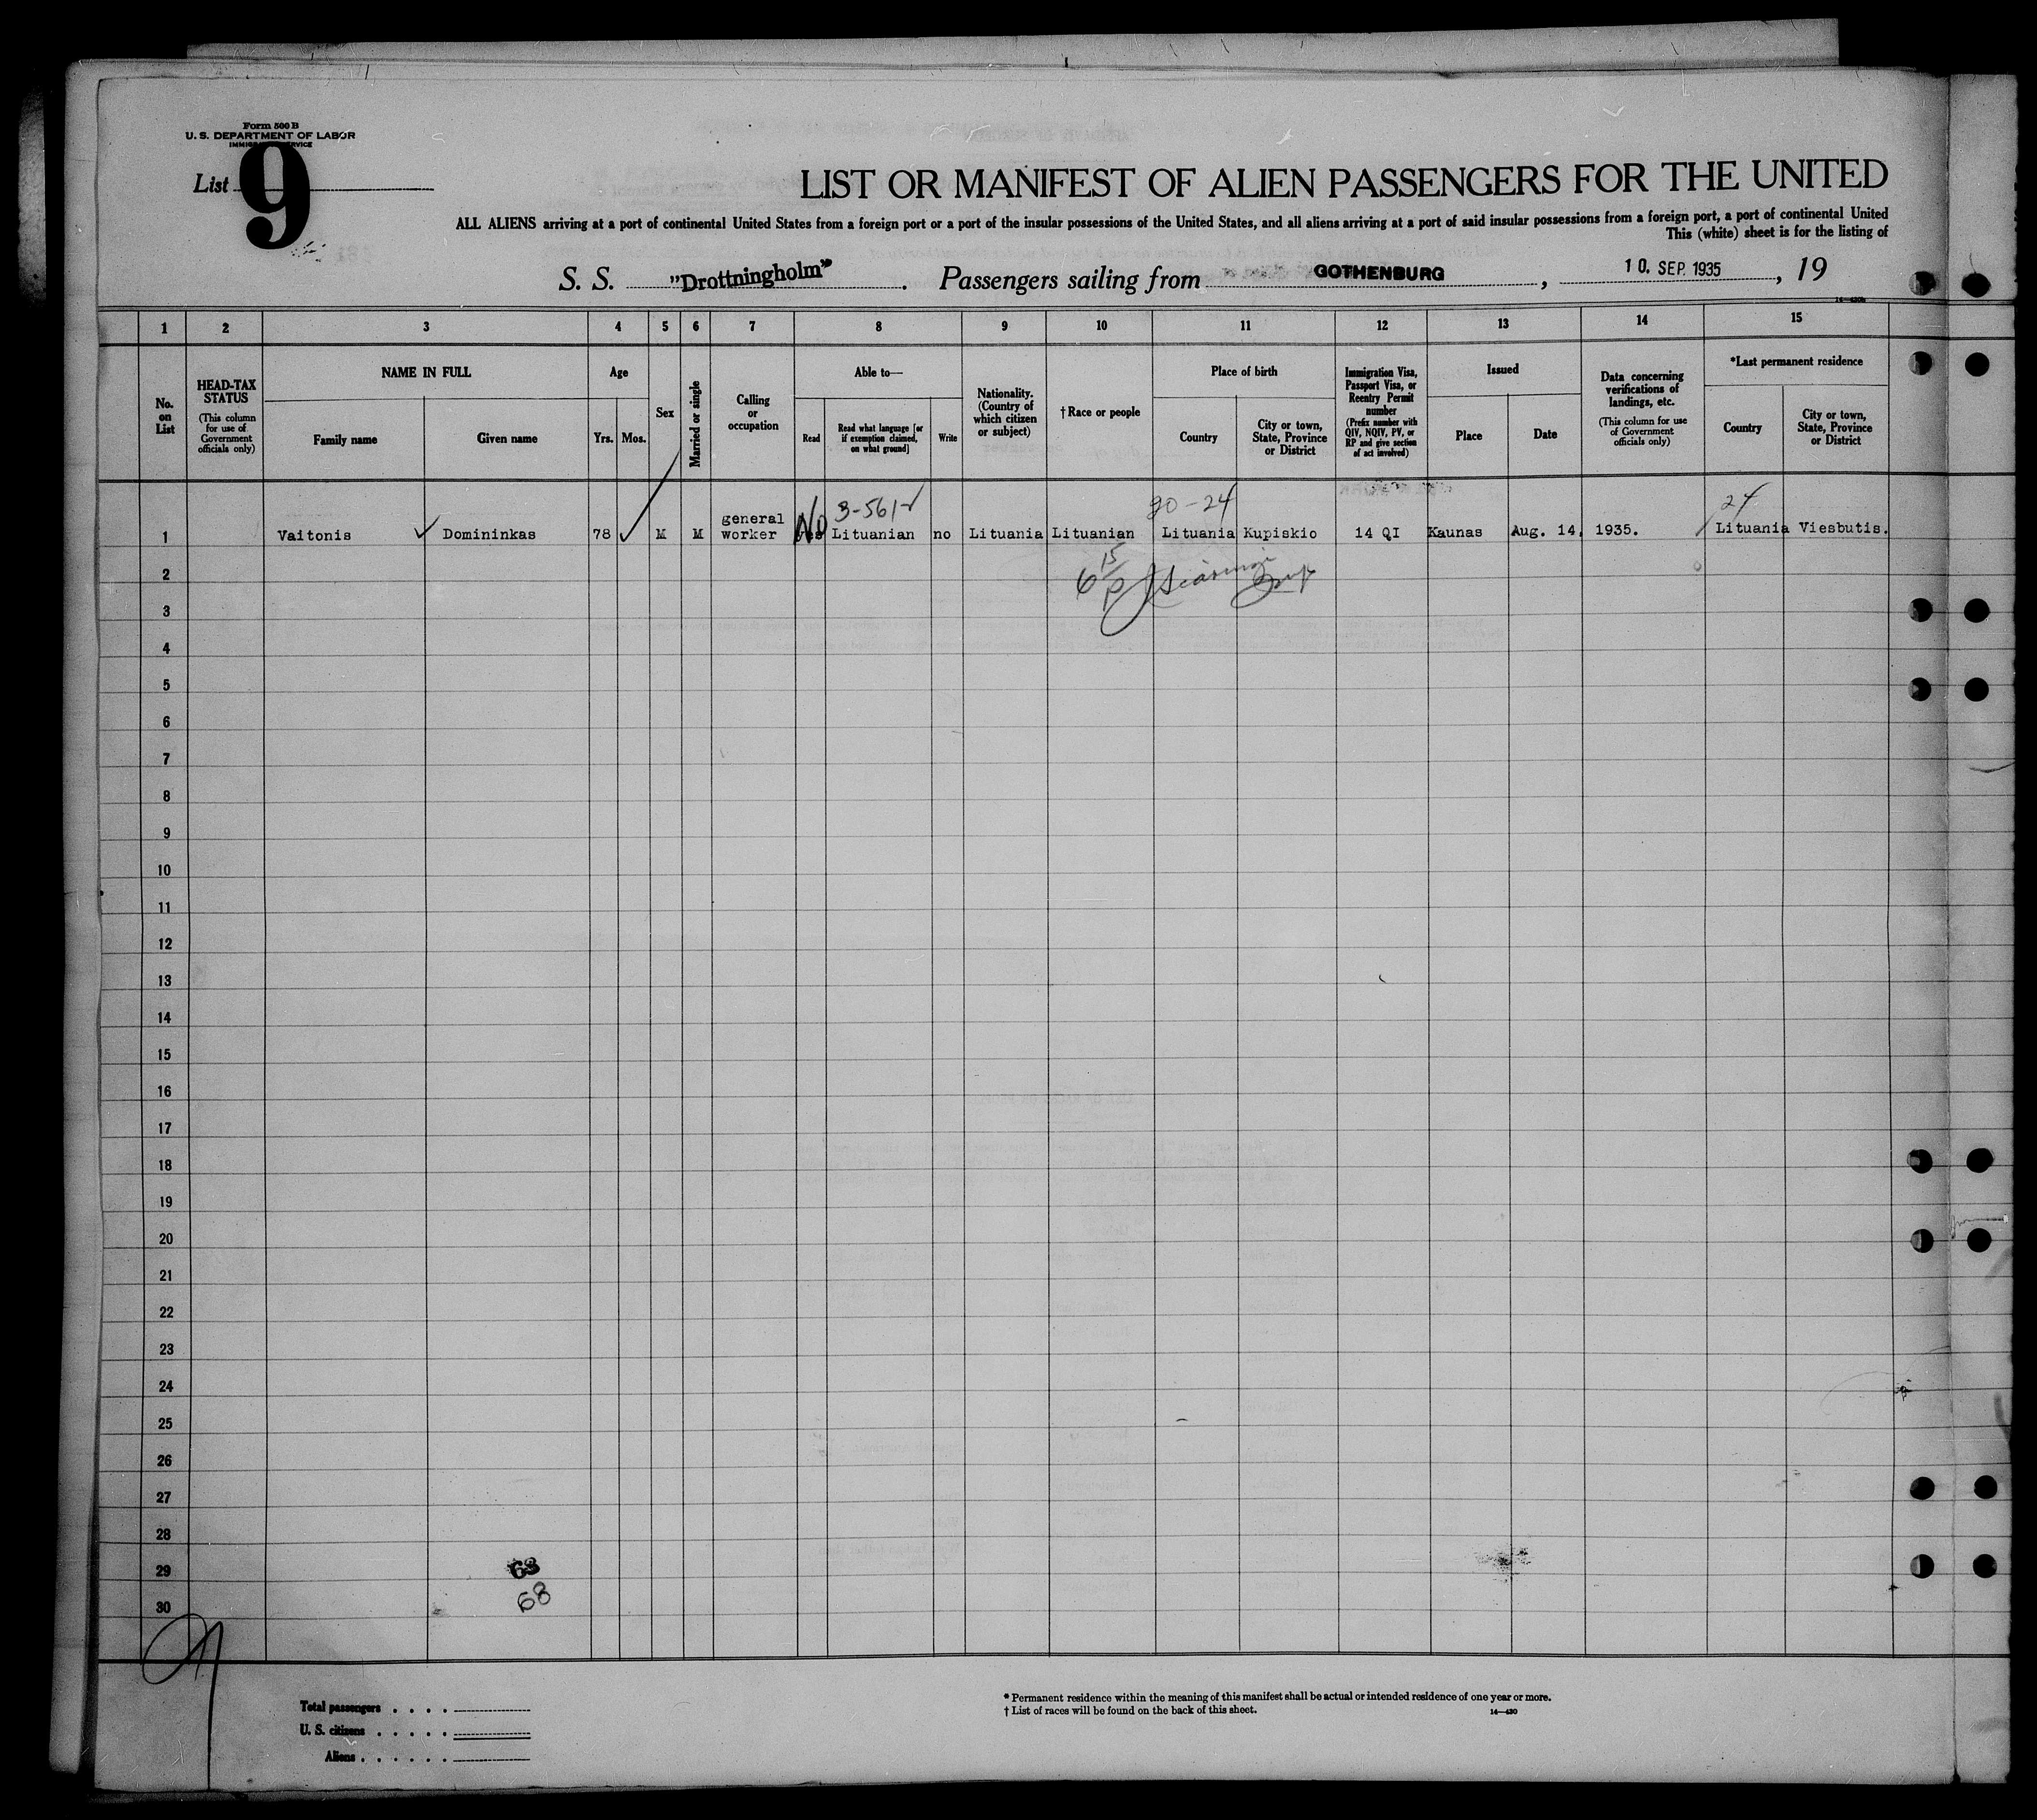 Form 500 B
U. S. DEPARTMENT OF LABOR
List 9
LIST OR MANIFEST OF ALIEN PASSENGERS FOR THE UNITED
ALL ALIENS arriving at a port of continental United States from a foreign port or a port of the insular possessions of the United States, and all aliens arriving at a port of said insular possessions from a foreign port, a port of continental United
This (white) sheet is for the listing of
S. S. "Drottningholm". Passengers sailing from GOTHENBURG, 10. SEP. 1935, 19
1 2 3 4 5 6 7 8 9 10 11 12 13 14 15
No. on List
HEAD-TAX STATUS
(This column for use of Government officials only)
NAME IN FULL
Family name
Given name
Age
Yrs.
Mos.
Sex
Married or single
Calling or occupation
Able to—
Read
Read what language [or if exemption claimed, on what ground]
Write
Nationality. (Country of which citizen or subject)
† Race or people
Place of birth
Country
City or town, State, Province or District
Immigration Visa, Passport Visa, or Reentry Permit number
(Prefix number with QIV, NQIV, PV, or RP and give section of act involved)
Issued
Place
Date
Data concerning verifications of landings, etc.
(This column for use of Government officials only)
*Last permanent residence
Country
City or town, State, Province or District
3-561 20-24 24
1 Vaitonis Domininkas 78 M M general worker No Lituanian no Lituania Lituanian Lituania Kupiskio 14 QI Kaunas Aug. 14, 1935. Lituania Viesbutis.
2
3
4
5
6
7
8
9
10
11
12
13
14
15
16
17
18
19
20
21
22
23
24
25
26
27
28
29
30
63
68
Total passengers . . . .
U. S. citizens . . . . .
Aliens . . . . . .
* Permanent residence within the meaning of this manifest shall be actual or intended residence of one year or more.
† List of races will be found on the back of this sheet.
14—430